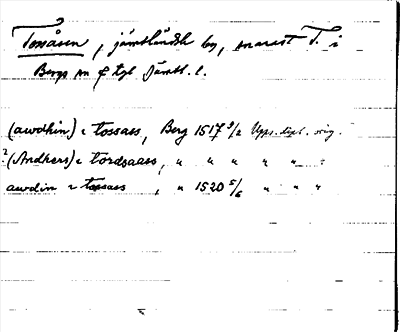 ?
Tossåsen, jämtländsk by, snarast T. i
Bergs sn o. tgl Jämtl. l.
(awdhin) i tossaes, Berg 1517 9/2 Upps. dipl. orig.
?(Andhers) i tordsaaes, " " " " " :
awdin i tossaes, " 1520 5/6 " " "